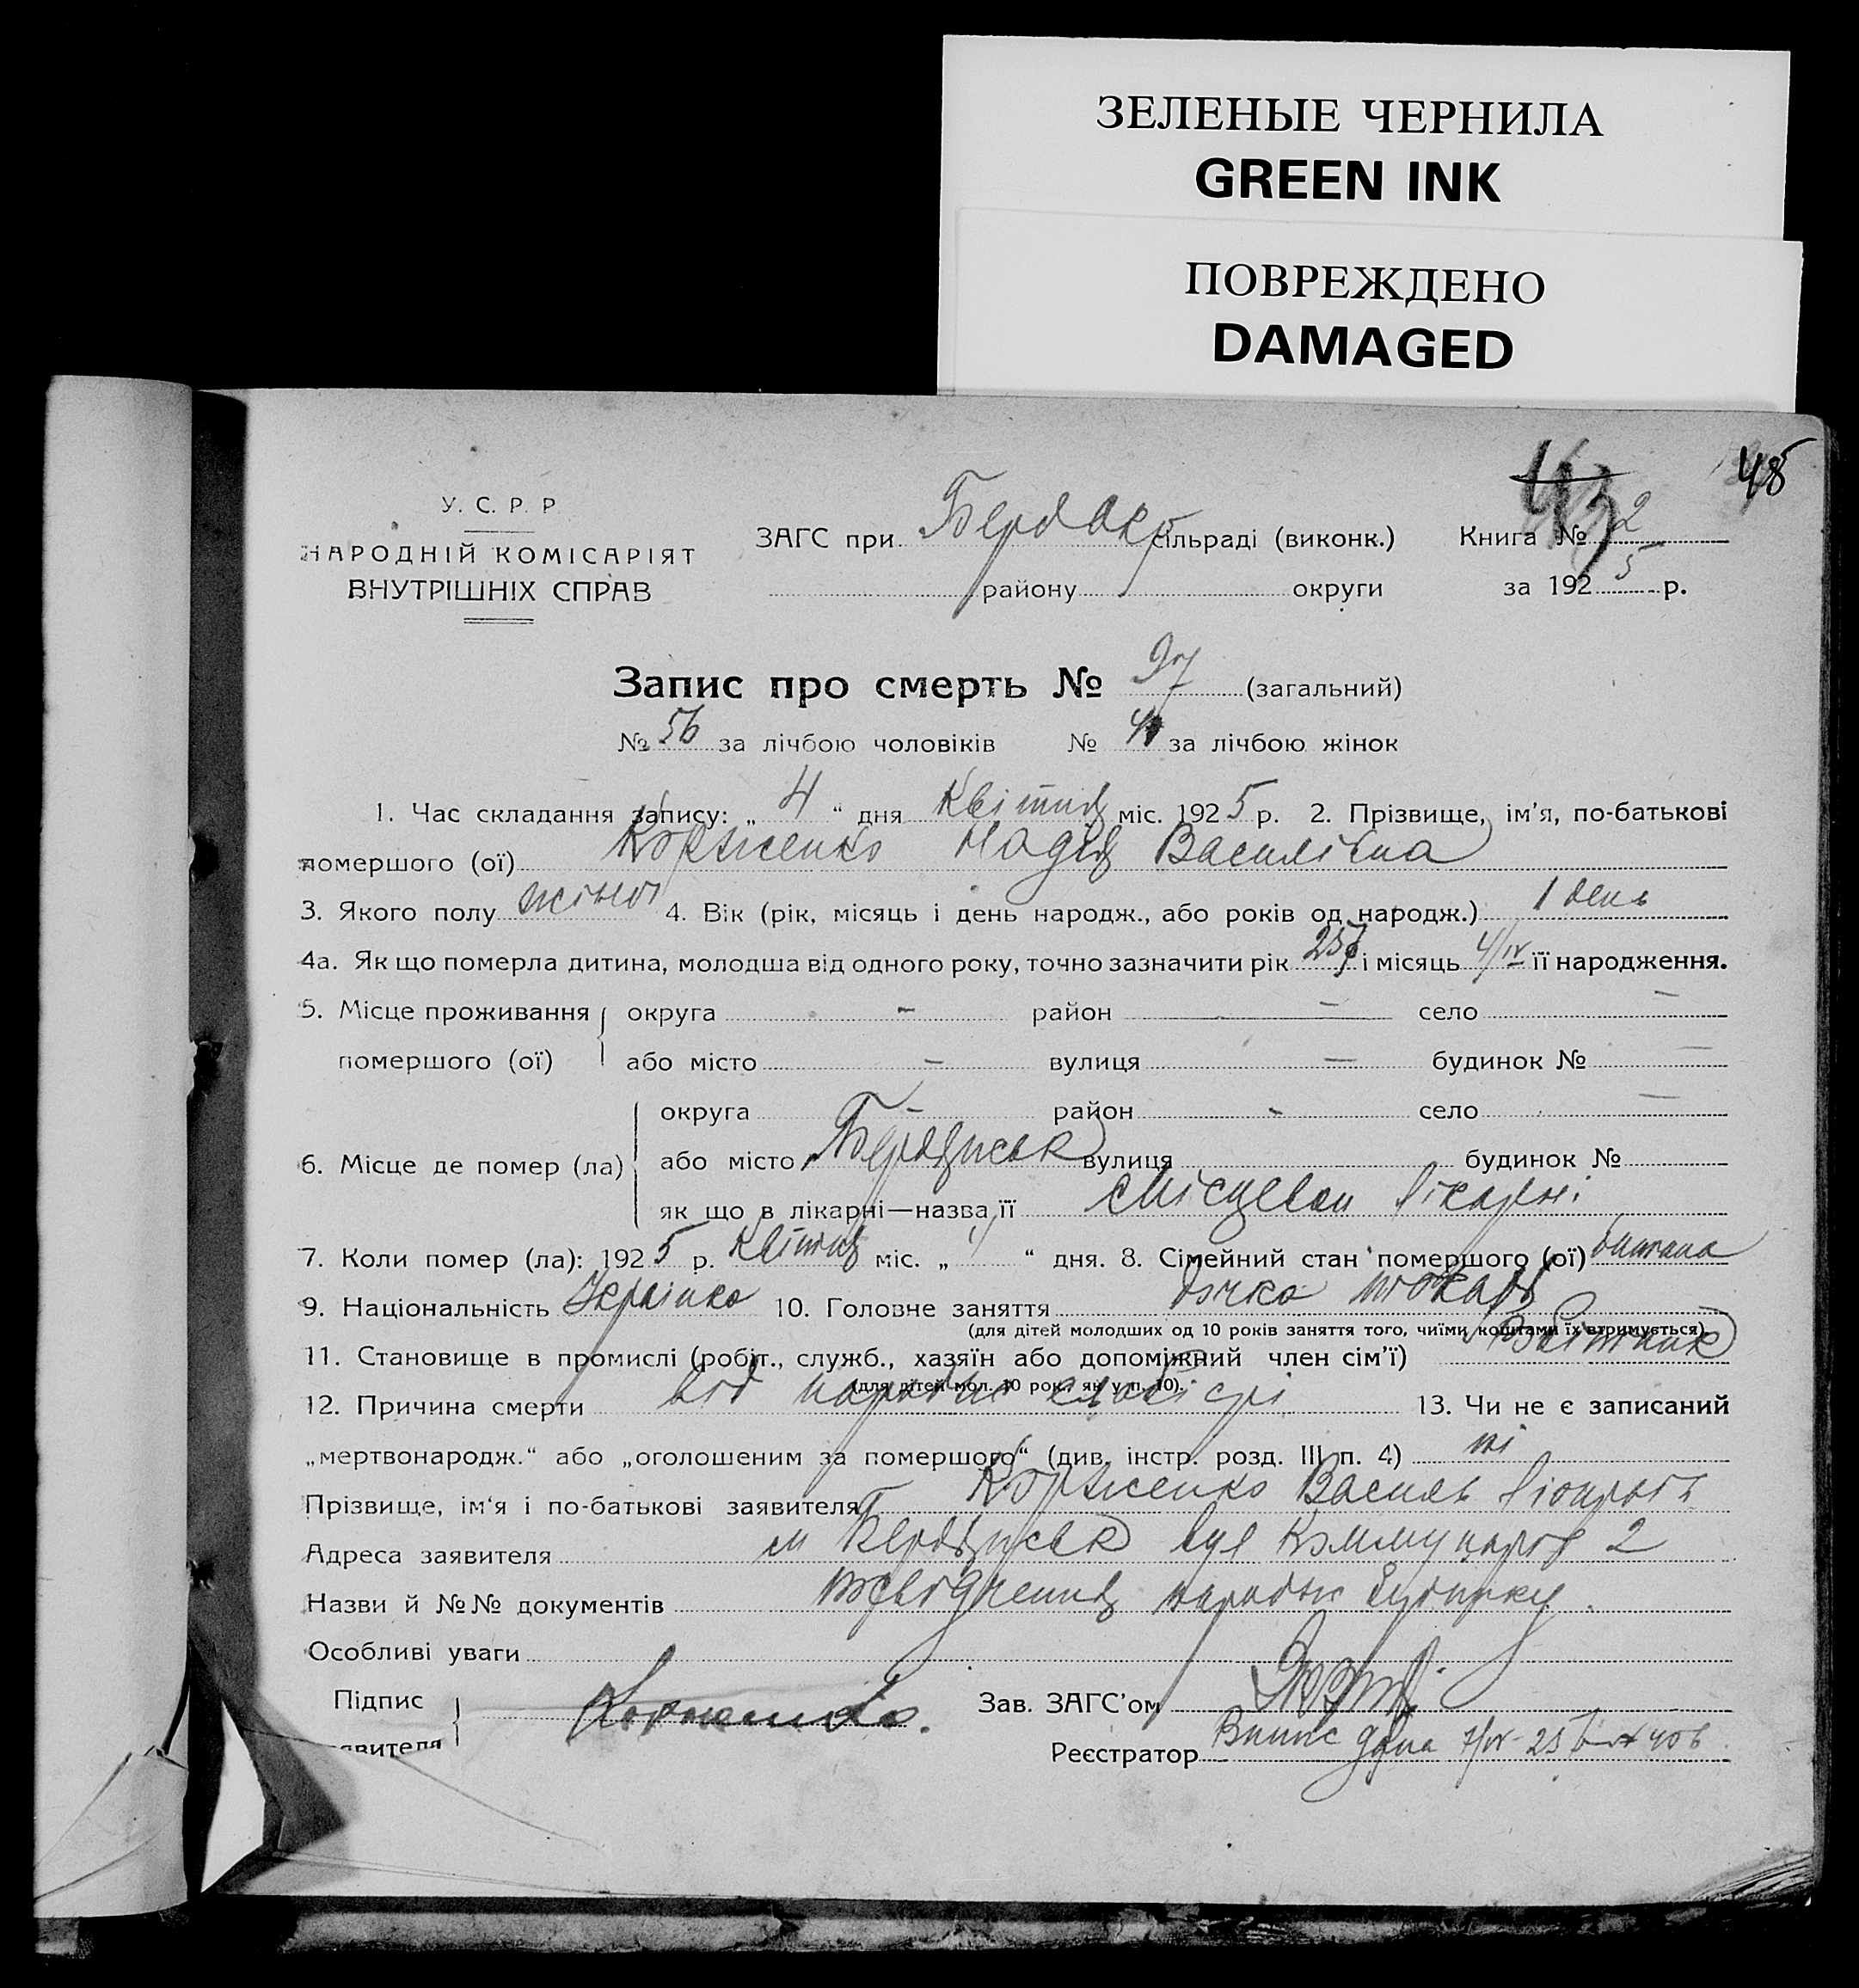 ЗЕЛЕНЫЕ ЧЕРНИЛА
GREEN INK
ПОВРЕЖДЕНО
DAMAGED
48
У. С. Р. Р
НАРОДНІЙ КОМІСАРІЯТ
ВНУТРІШНІХ СПРАВ
ЗАГС при сільраді (виконк.) Книга № 2
району округи за 1925 р.
Запис про смерть № 97 (загальний)
№ 56 за лічбою чоловіків № 41 за лічбою жінок
1. Час складання запису: „ 4 “ дня Квітня міс. 1925 р. 2. Прізвище, ім'я, по-батькові
помершого (ої) Корженко Надія Василівна
3. Якого полу жіночого 4. Вік (рік, місяць і день народж., або років од народж.) 1 день
4а. Як що померла дитина, молодша від одного року, точно зазначити рік 25 і місяць 4/IV її народження.
5. Місце проживання округа – район – село –
помершого (ої) або місто – вулиця – будинок № –
округа – район - село –
6. Місце де помер (ла) або місто Бердянськ вулиця будинок №
як що в лікарні—назва її місцевій лікарні
7. Коли помер (ла): 1925 р. Квітня міс. „ 4 “ дня. 8. Сімейний стан помершого (ої) дитина
9. Національність Українка 10. Головне заняття дочка токаря
(для дітей молодших од 10 років заняття того, чиїми коштами їх втримується)
11. Становище в промислі (робіт., служб., хазяїн або допоміжний член сім'ї) Робітник
(для дітей мол. 10 рок., як у п. 10).
12. Причина смерти від 13. Чи не є записаний
„мертвонародж.“ або „оголошеним за помершого“ (див. інстр. розд. III п. 4) ні
Прізвище, ім'я і по-батькові заявителя Корженко Василь
Адреса заявителя м Бердянськ вул 2
Назви й №№ документів посвідчення
Особливі уваги
Підпис Корженко. Зав. ЗАГС'ом
явителя Реєстратор Випис дана 7/IV-25